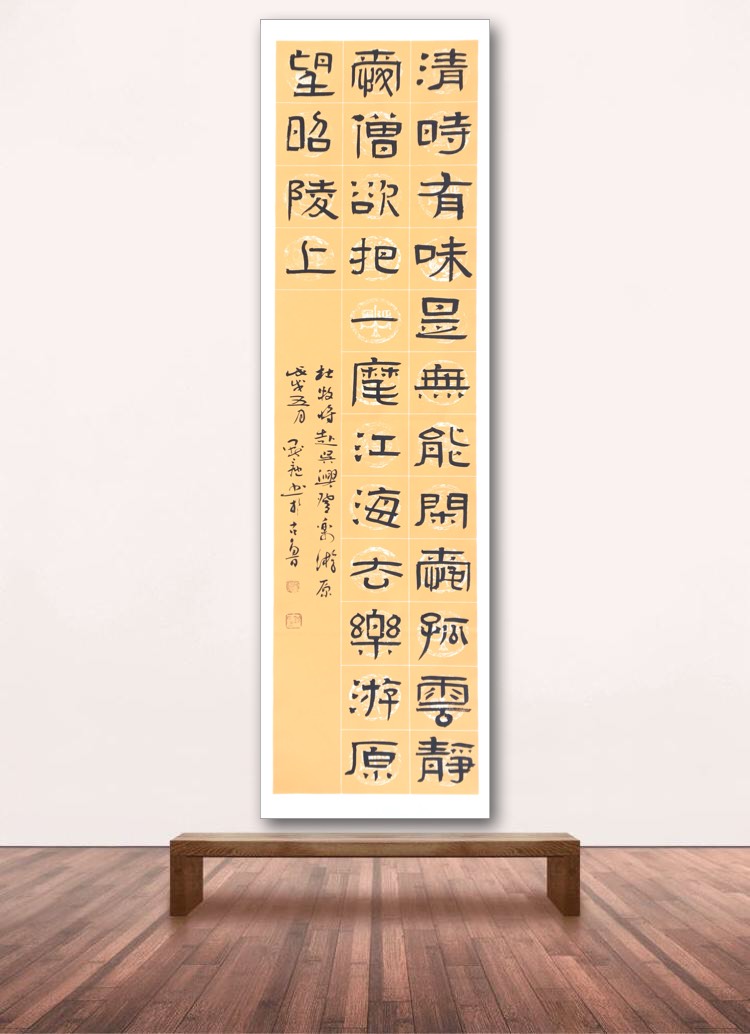 清時有味是無能閑愛孤雲靜
愛僧欲把一麾江海去樂游原
望昭陵上
杜牧将赴吴興登樂游原
戌五月 书於古魯